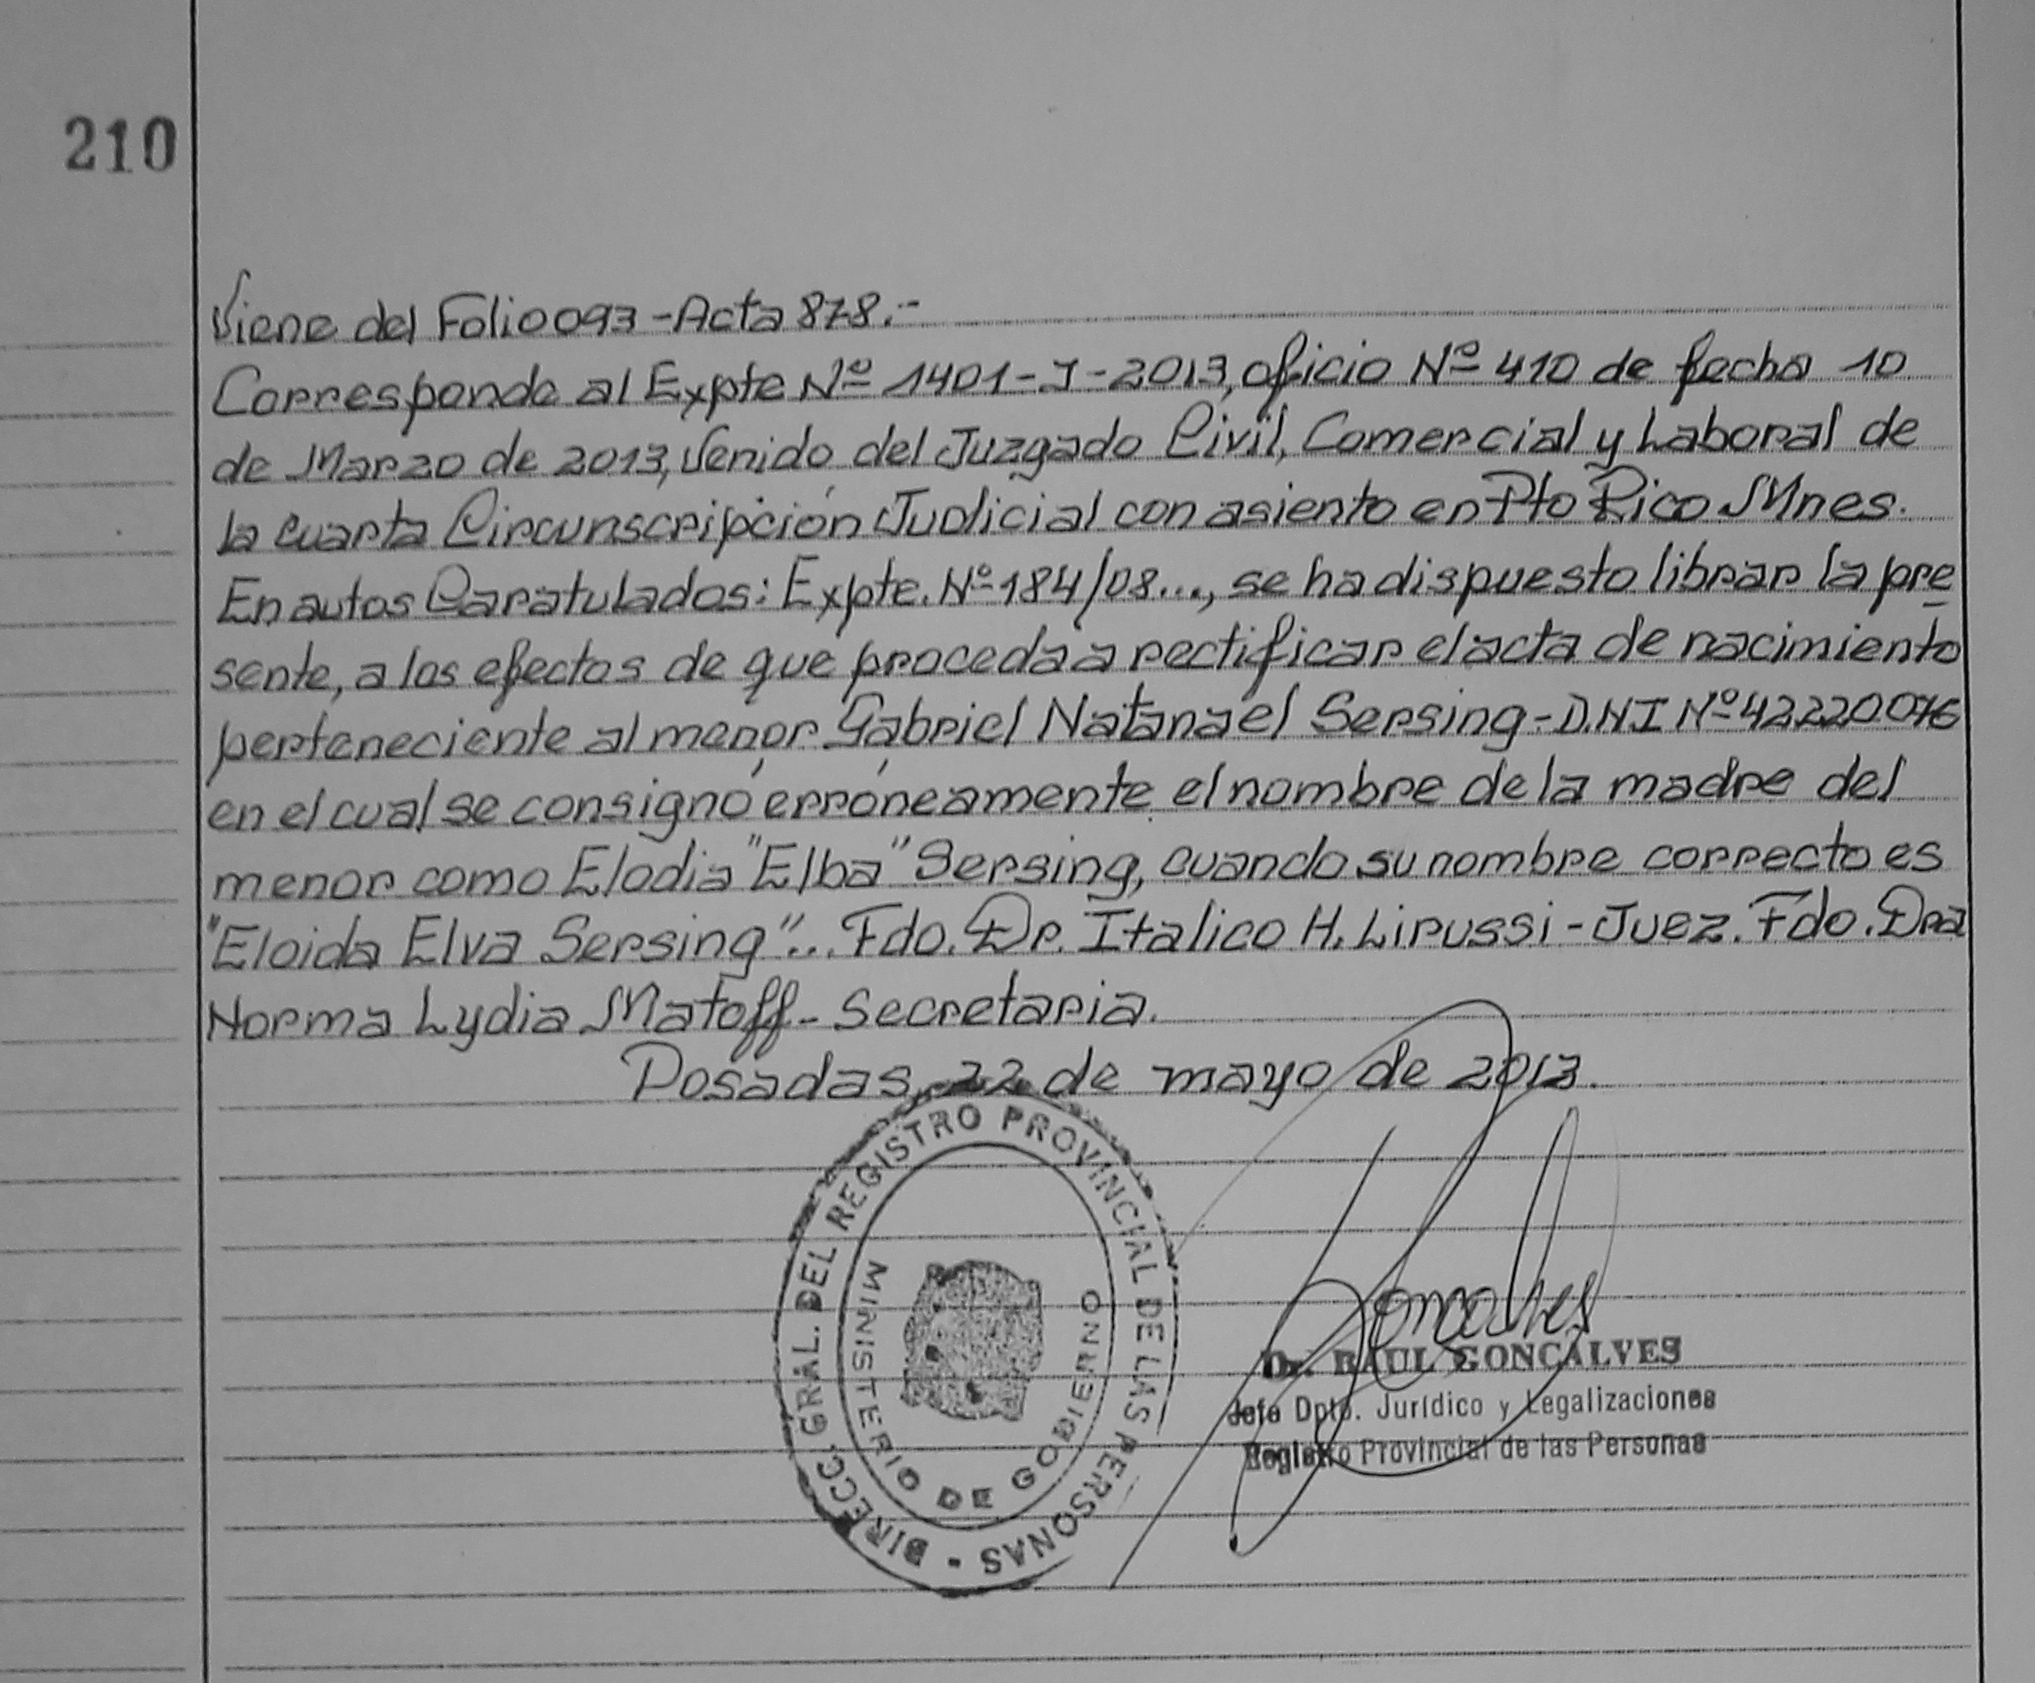 210
Viene del Folio 093 - Acta 878.-
Corresponde al Expte Nº 1401-J-2013, oficio Nº 410 de fecha 10
de Marzo de 2013, Venido del Juzgado Civil, Comercial y Laboral de
la cuarta Circunscripción Judicial con asiento en Pto Rico Mnes.
En autos Caratulados: Expte. Nº 184/08..., se ha dispuesto librar la pre
sente, a los efectos de que proceda a rectificar el acta de nacimiento
perteneciente al menor Gabriel Natanael Sersing - D.N.I Nº 42220076
en el cual se consignó erróneamente el nombre de la madre del
menor como Elodia "Elba" Sersing, cuando su nombre correcto es
"Eloida Elva Sersing"... Fdo. Dr. Italico H. Lirussi - Juez. Fdo. Dra
Norma Lydia Matoff - Secretaria.
Posadas, 22 de mayo de 2013.
DIRECC. GRAL. DEL REGISTRO PROVINCIAL DE LAS PERSONAS -
MINISTERIO DE GOBIERNO
Goncalves
Dr. RAUL GONCALVES
Jefe Dpto. Jurídico y Legalizaciones
Registro Provincial de las Personas